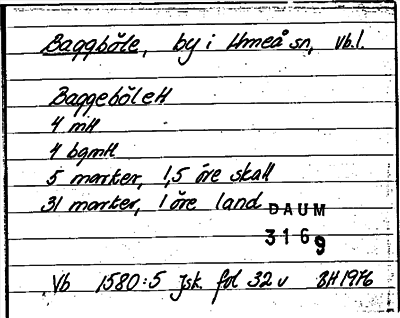 Baggböle, by i Umeå sn, Vb.l.
BaggeböleH
4 mH
4 bgmH
5 marker, 1,5 öre skatt
31 marker, 1 öre land
DAUM
3169
Vb 1580:5 Jsk fol 32v BH 1976